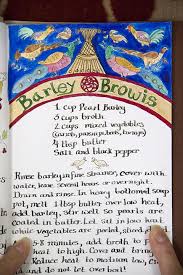 Barley Browis
1 cup Pearl Barley
5 cups broth
2 cups mixed vegetables
(carrots, parsnips, leeks, turnips)
4 tbsp butter
Salt and black pepper
Rinse barley in fine strainer, cover with
water, leave several hours or overnight.
Drain and rinse. In heavy bottomed soup
pot, melt 1 tbsp butter over low heat,
add barley. Stir well so pearls are
coated in butter. Let sit in low heat
while vegetables are peeled, sliced, di
5-8 minutes, add broth to
heat to high. Cover and bring
Reduce heat to medium low,
and do not let over boil!